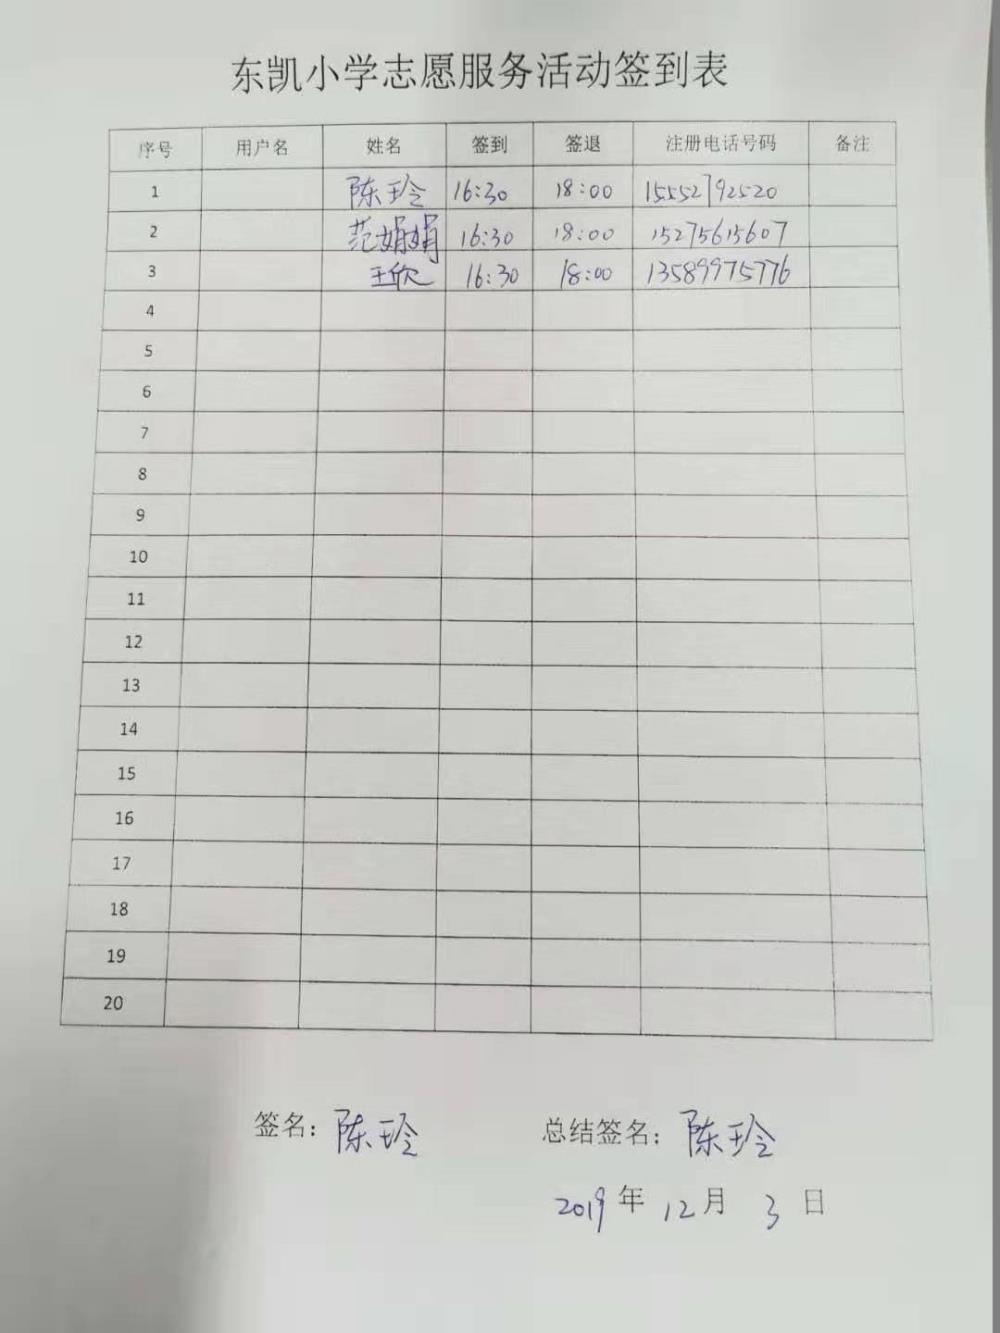 东凯小学志愿服务活动签到表
序号 用户名 姓名 签到 签退 注册电话号码 备注
1 陈玲 16:30 18:00 15552792520
2 范娟娟 16:30 18:00 15275615607
3 王欣 16:30 18:00 13589975776
4
5
6
7
8
9
10
11
12
13
14
15
16
17
18
19
20
签名：陈玲 总结签名：陈玲
2019年12月3日